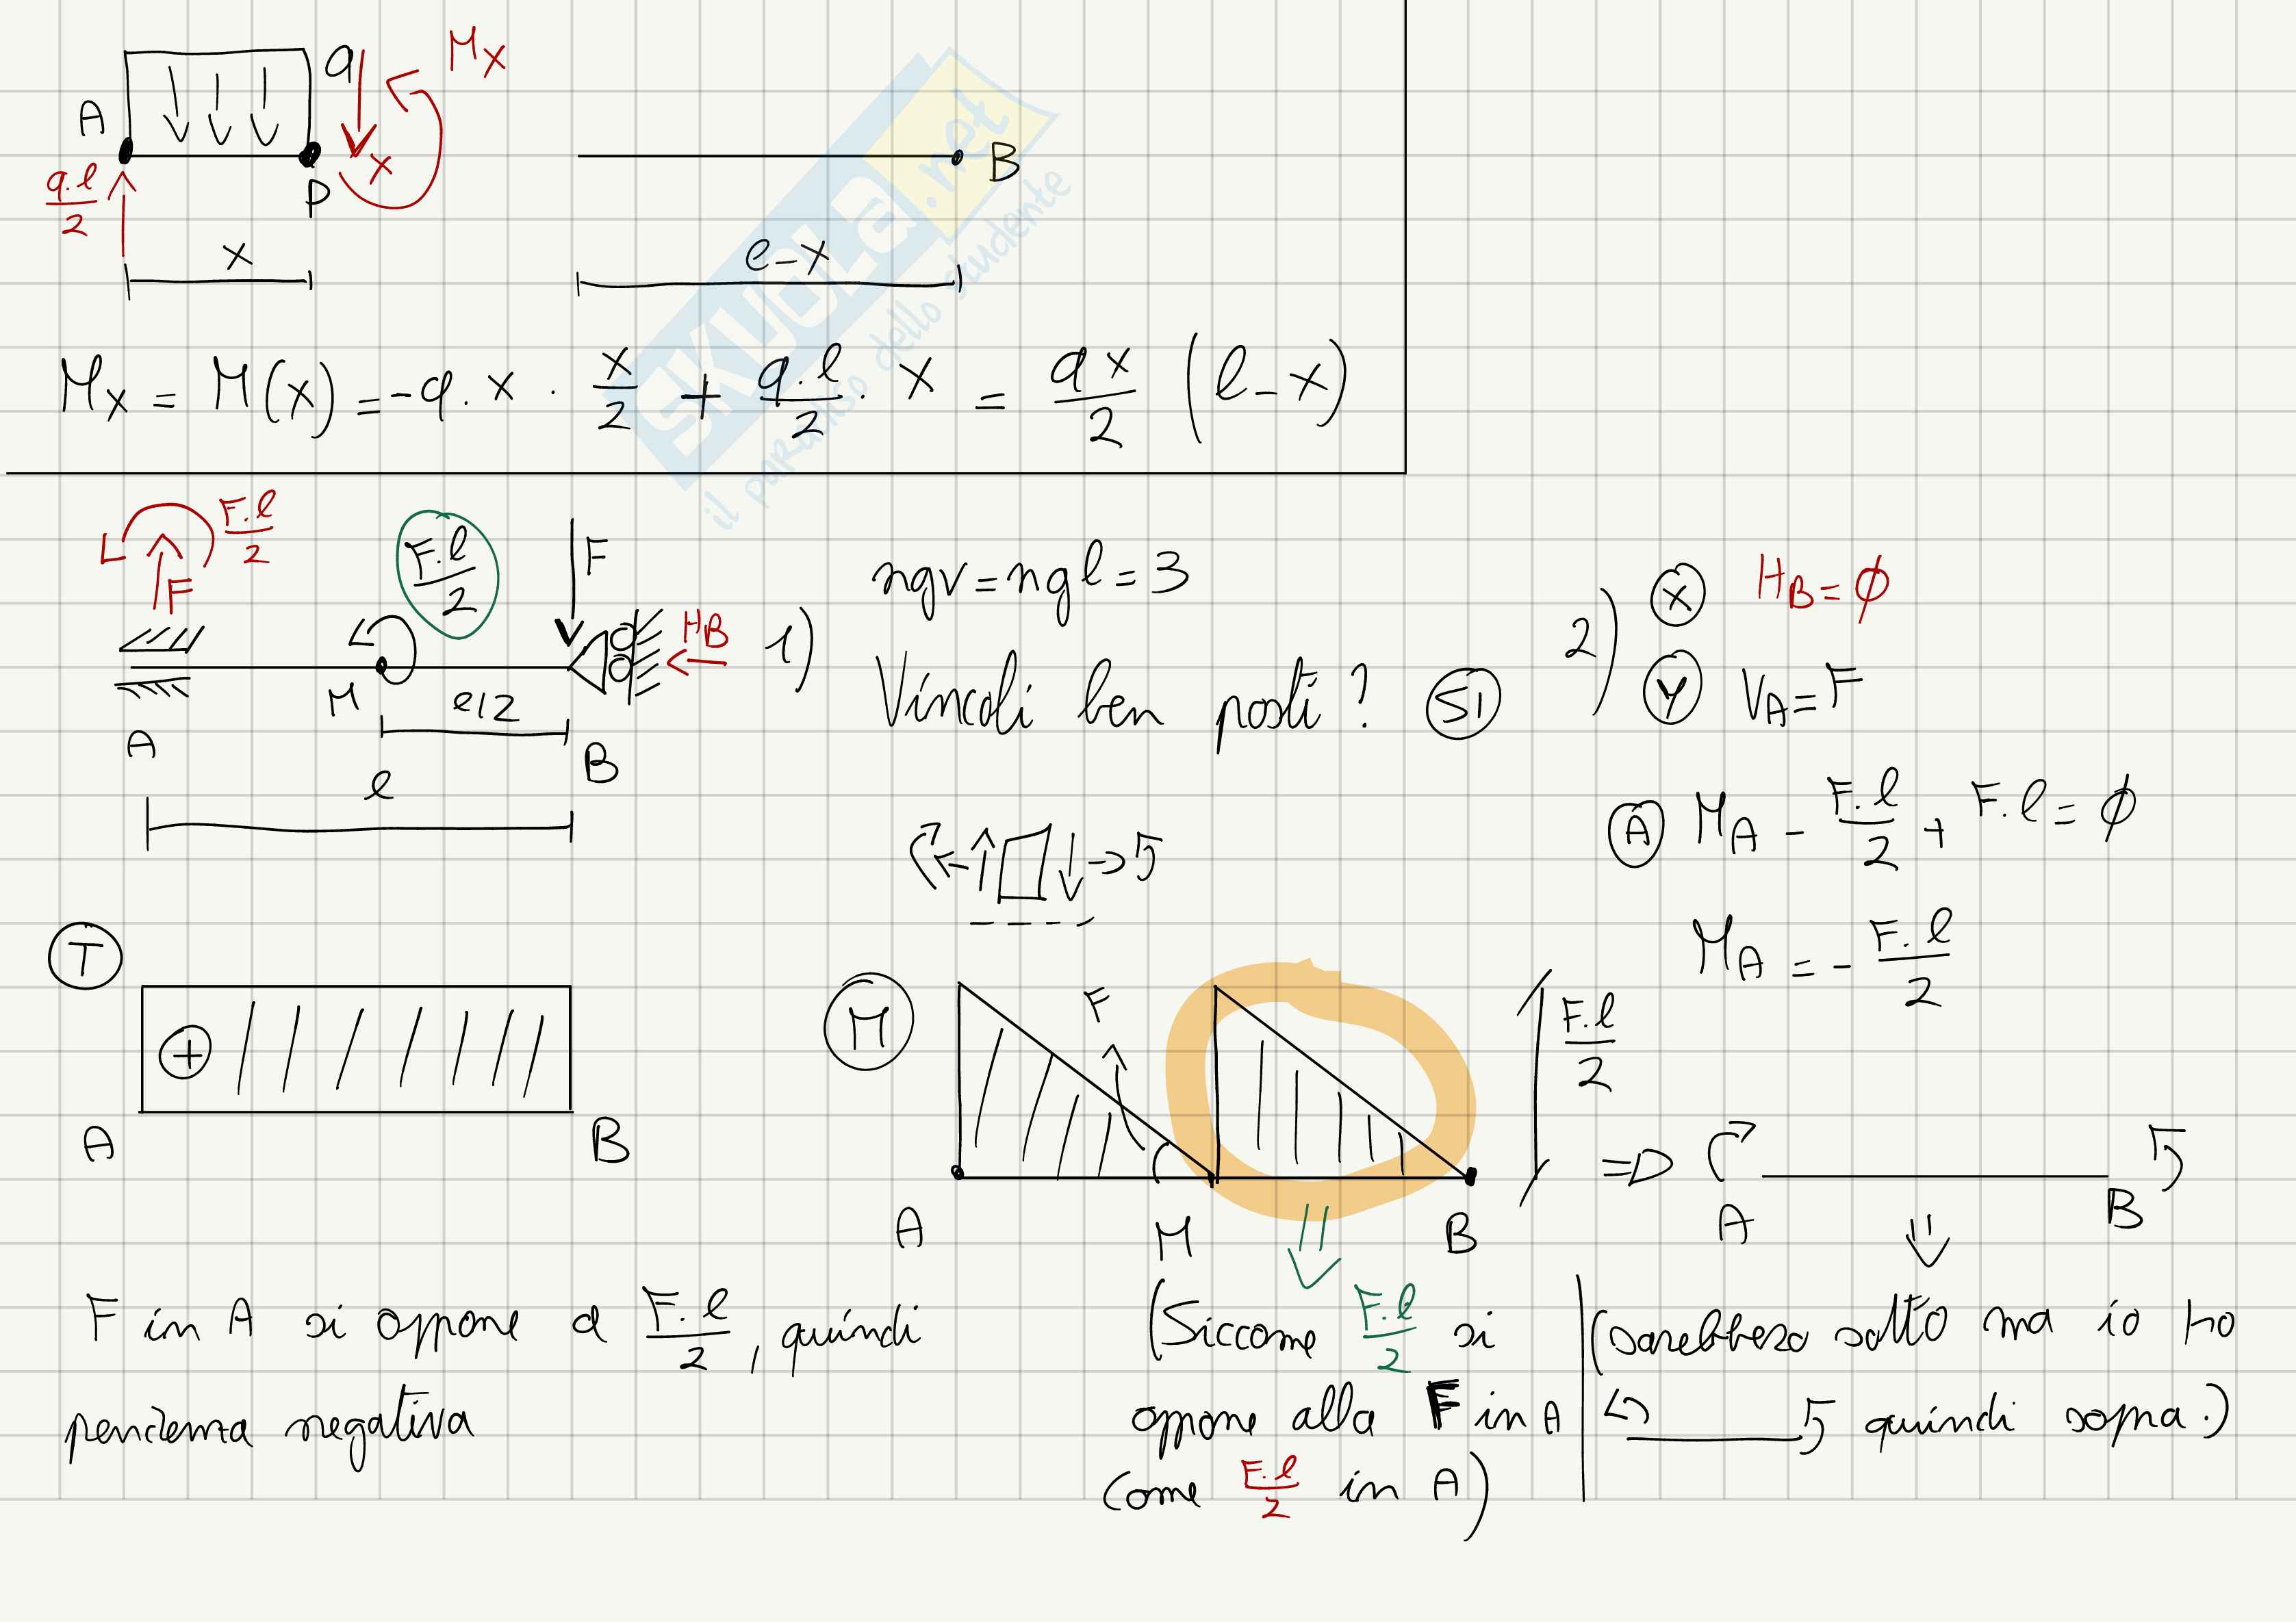 A
q
Mx
x
P
B
q.l/2
x
l-x
Mx = M(x) = -q.x . x/2 + q.l/2 . x = qx/2 (l-x)
SKUOLa.net
il paradiso dello studente
F.l/2
F
F.l/2
F
HB
M
l/2
A
B
l
1) ngv = ngl = 3
Vincoli ben posti? SI
2) X HB = ϕ
Y VA = F
A MA - F.l/2 + F.l = ϕ
MA = - F.l/2
T
+
A
B
M
F
A
M
B
F.l/2
=>
A
B
F in A si oppone a F.l/2, quindi
pendenza negativa
(Siccome F.l/2 si
oppone alla F in A
come F.l/2 in A)
(sarebbero sotto ma io ho
quindi sopra.)